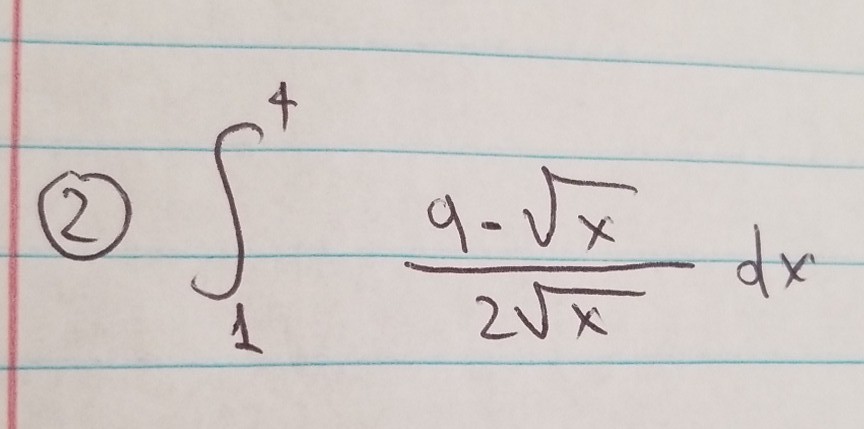 ② ∫₁⁴ (9-√x)/(2√x) dx